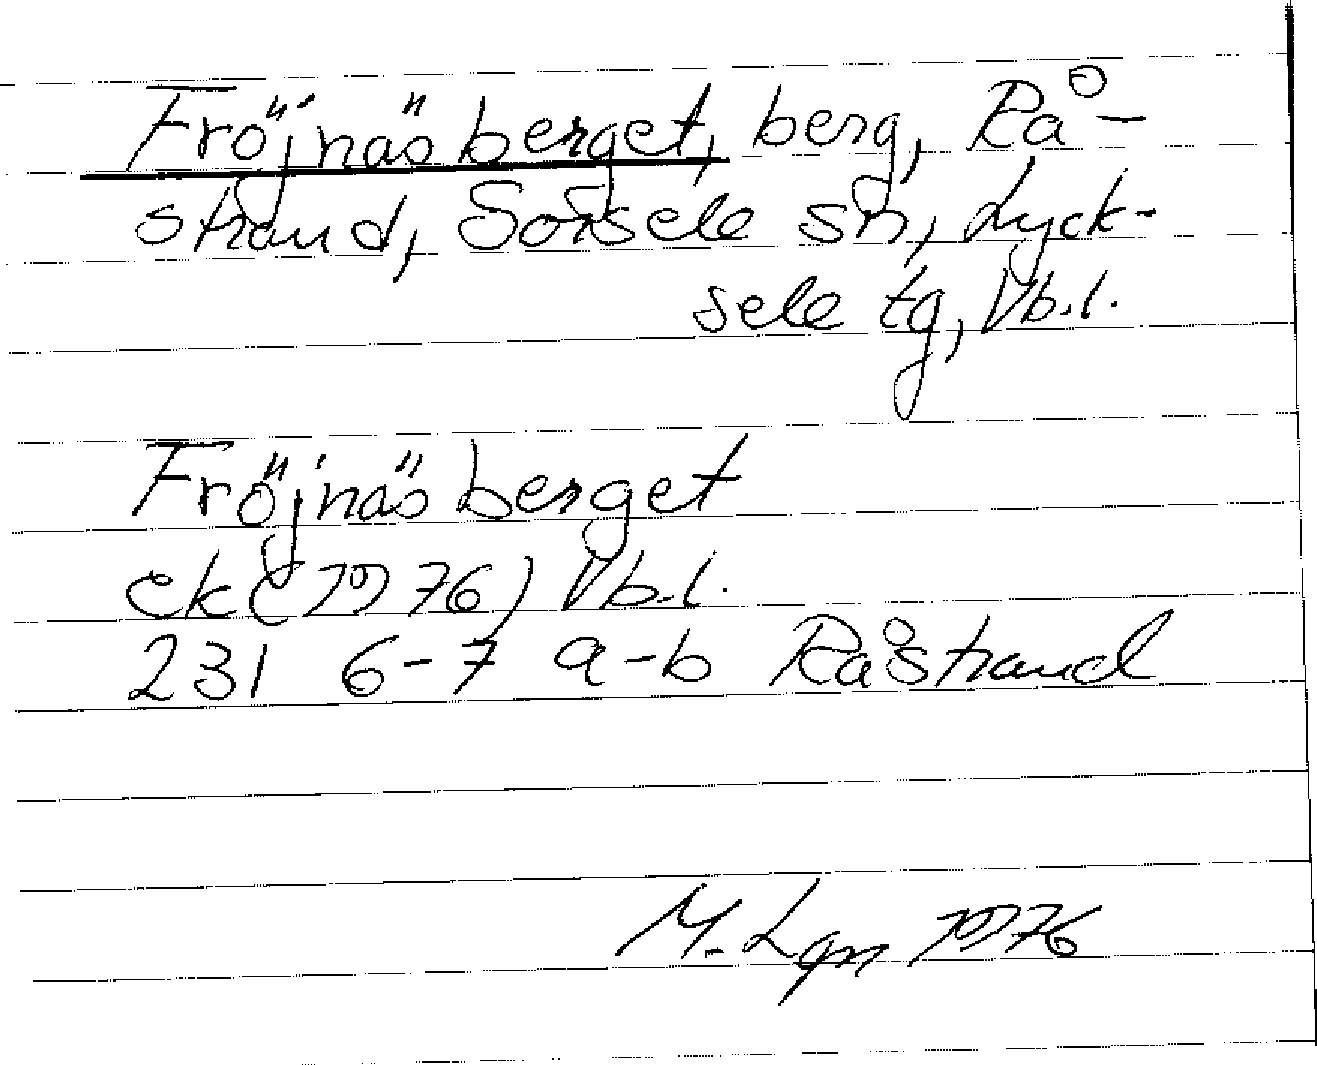 Fröjnäsberget, berg, Rå-
strand, Sorsele sn, Lyck-
sele tg, Vb.l.
Fröjnäsberget
ek (1976) Vb.l.
231 6-7 a-b Råstrand
M. Lgn 1976